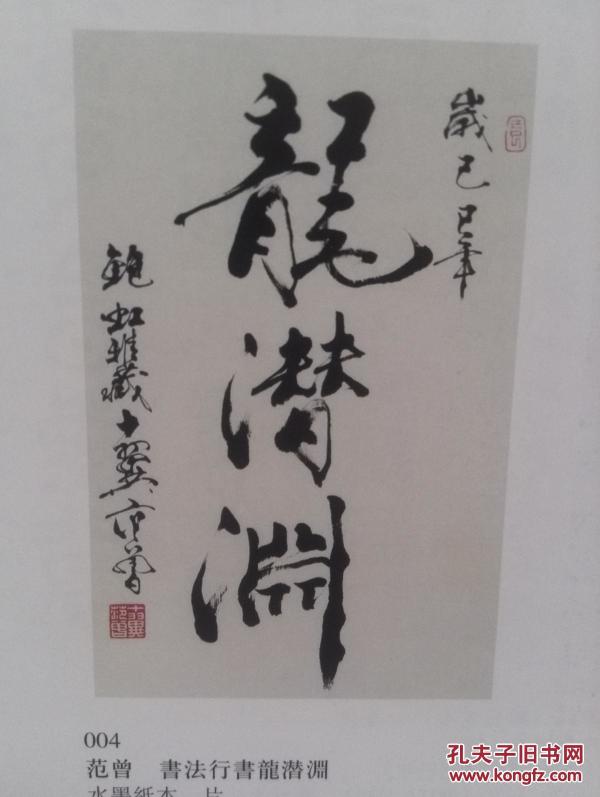 歲己巳年
龍潜淵
鮑虹雅藏十翼范曾
十翼范曾
004
范曾 書法行書龍潜淵
水墨紙本 片
孔夫子旧书网
www.kongfz.com